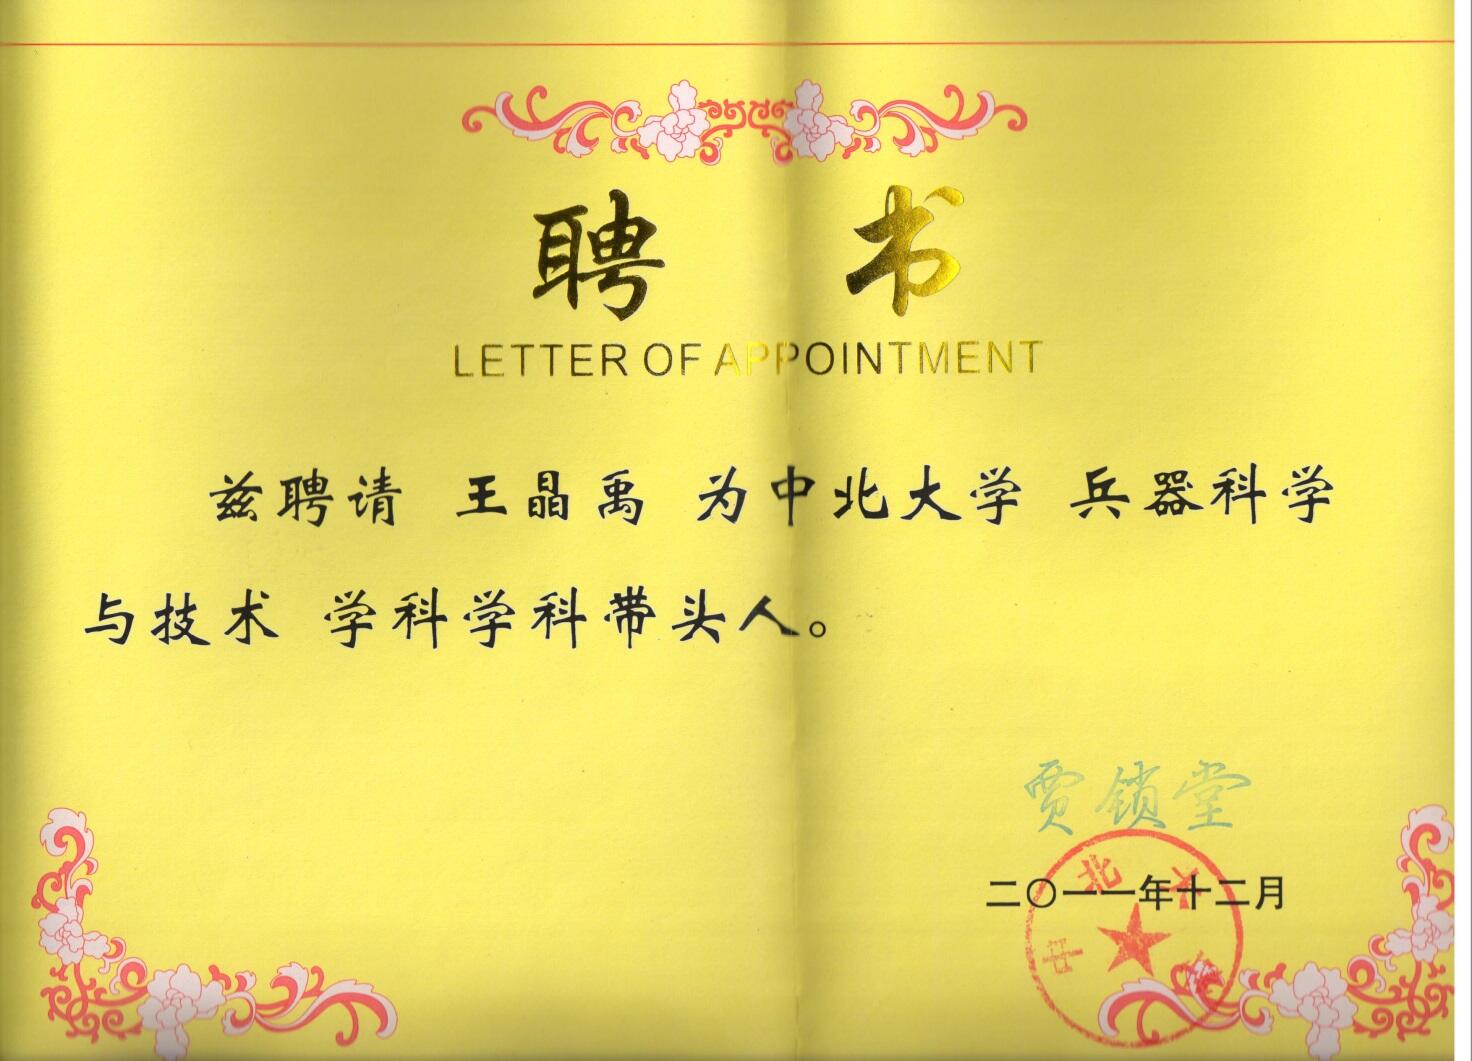 聘 书
LETTER OF APPOINTMENT
兹聘请 王晶禹 为中北大学 兵器科学
与技术 学科学科带头人。
贾锁堂
二〇一一年十二月
中北大学